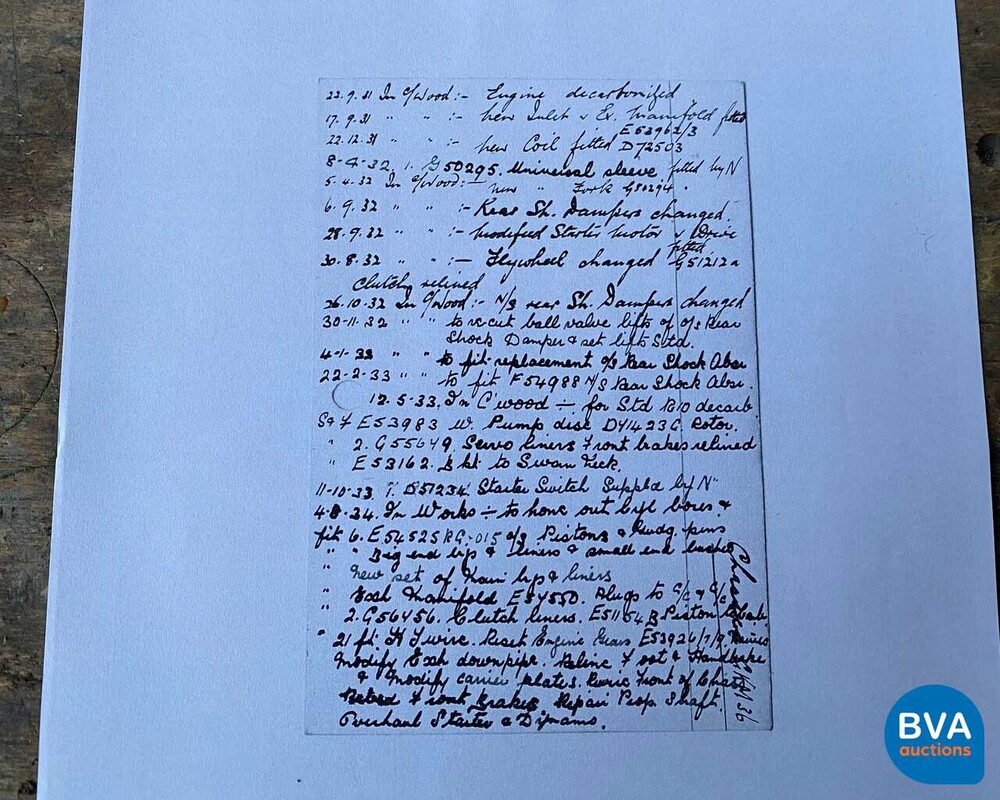 22.9.31 In C/Wood:- Engine decarbonized
17.9.31 " " :- new Inlet & Ex. Manifold fitted
E53962/3
22.12.31 " " :- new Coil fitted D72503
8-4-32. 1. G50295. Universal sleeve fitted by N
5.4.32 In C/Wood:- new " Fork G50294.
6.9.32 " " :- Rear Sh. Dampers changed.
28.9.32 " " :- Modified Starter Motor & Drive
fitted.
30.8.32 " " :- Flywheel changed G51212a
Clutch relined
26.10.32 In C/Wood:- N/S rear Sh. Dampers changed
30-11.32 " " to re-cut ball valve lifts of O/S Rear
Shock Damper & set lifts Std.
4-1-33 " " to fit replacement O/S Rear Shock Abser
22-2-33 " " to fit F54988 N/S Rear Shock Absr.
12.5-33. In C'wood ÷ for Std R10 decarb.
E53983 W. Pump disc DY1423G. Rotor.
" 2. G55649. Servo liners Front brakes relined
" E53162. Bkt to Swan Neck.
11-10-33 1. D57234. Starter Switch Suppld by N"
4-8-34. In Works ÷ to hone out Cyl bores &
fit 6. E54525RG.015 o/s Pistons & Gudg. pins
" " Big end bps & liners & small end bushes
" New set of Main bps & liners
" Exh Manifold E54550. Plugs to
" 2. G56456. Clutch liners. E51154 B Piston
" 21 ft. H T wire. Reset Engine Gears E53926/7/9
Modify Exh downpipe. Reline Foot & Handbrake
& Modify carrier plates. Front of Chassis
Front Brakes. Repair Prop Shaft.
Overhaul Starter & Dynamo.
BVA
auctions